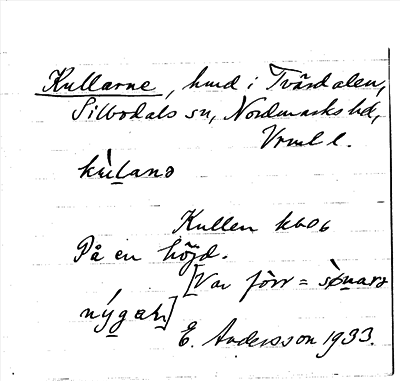 Kullarne, hmd i Tvärdalen,
Silbodals sn, Nordmarks hd,
Vrml l.
kùlanə
Kullen kbob
På en höjd.
[Var förr =
nýgaṇ]
E. Andersson 1933.